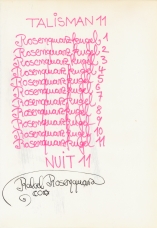 TALISMAN 11
Rosenquarzkugel 1
Rosenquarzkugel 2
Rosenquarzkugel 3
Rosenquarzkugel 4
Rosenquarzkugel 5
Rosenquarzkugel 6
Rosenquarzkugel 7
Rosenquarzkugel 8
Rosenquarzkugel 9
Rosenquarzkugel 10
Rosenquarzkugel 11
NUIT 11